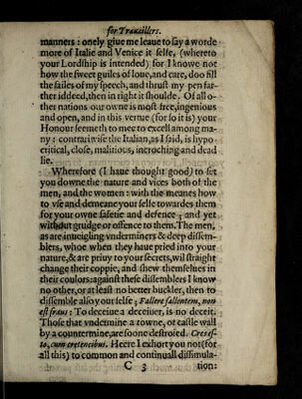 for Trauaillers.
manners: onely giue me leaue to say a worde
more of Italie and Venice it selfe, (whereto
your Lordship is intended) for I knowe not
how the sweet guiles of loue, and care, doo fill
the sailes of my speech, and thrust my pen far-
ther iddeed, then in right it shoulde. Of all o-
ther nations our owne is most free, ingenious
and open, and in this vertue (for so it is) your
Honour seemeth to mee to excell among ma-
ny: contrariwise the Italian, as I said, is hypo-
critical, close, malitious, incroching and dead
lie.
Wherefore (I haue thought good) to set
you downe the nature and vices both of the
men, and the women: with the meanes how
to vse and demeane your selfe towardes them
for your owne safetie and defence; and yet
without grudge or offence to them. The men,
as are inueigling vnderminers & deep dissem-
blers, whoe when they haue pried into your
nature, & are priuy to your secrets, wil straight
change their coppie, and shew themselues in
their coulors: against these dissemblers I know
no other, or at least no better buckler, then to
dissemble also your selfe; Fallere fallentem, non
est fraus: To deceiue a deceiuer, is no deceit.
Those that vndermine a towne, or castle wall
by a countermine, are soone destroied. Cretes-
to, cum cretensibus. Heere I exhort you not (for
all this) to common and continuall dissimula-
C 3 tion: